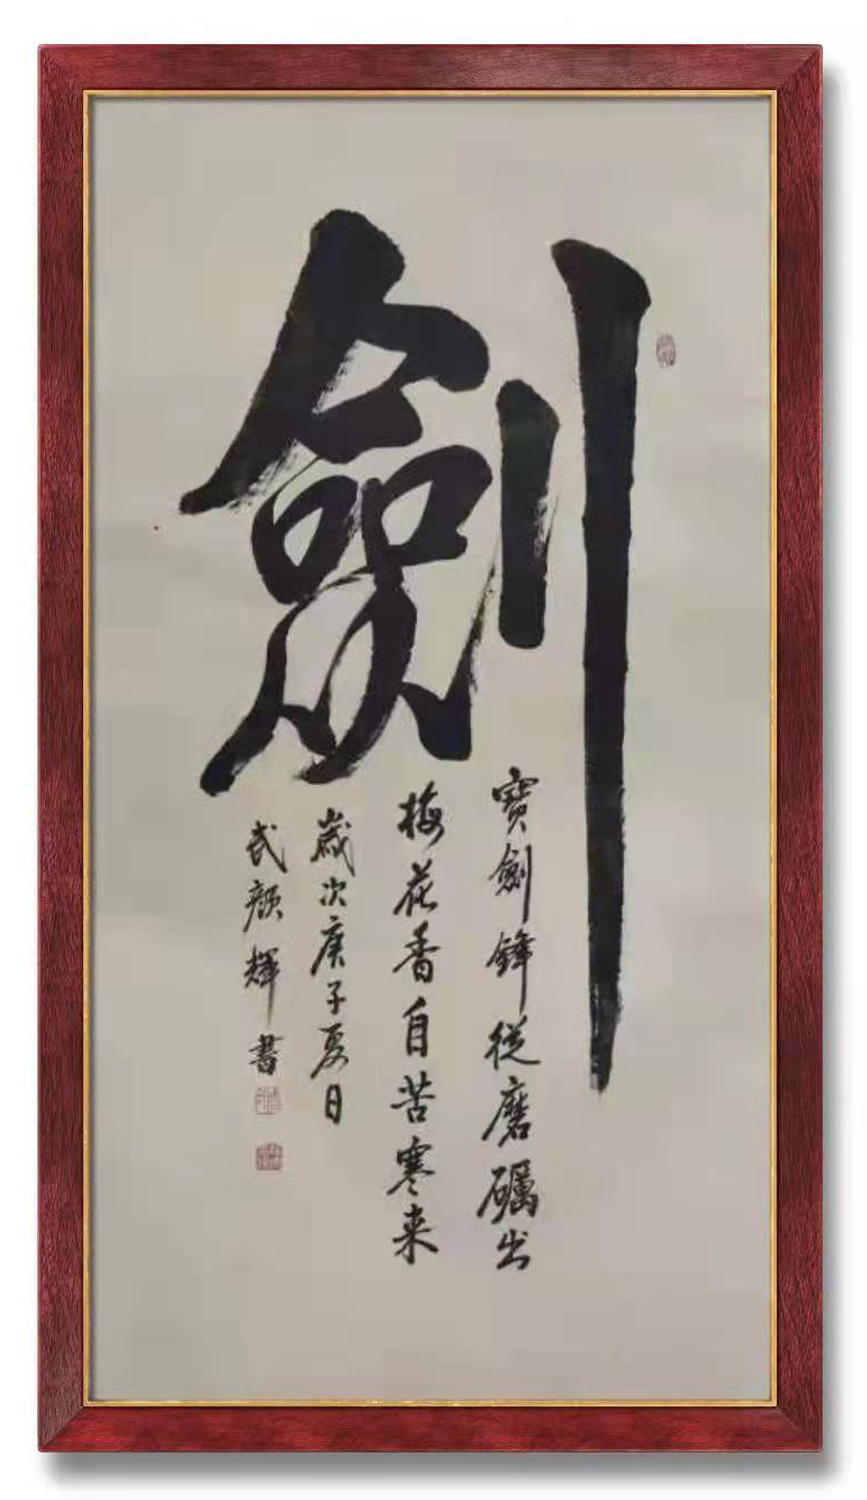 劍
寶劍鋒從磨礪出
梅花香自苦寒来
歲次庚子夏日
武顏輝書